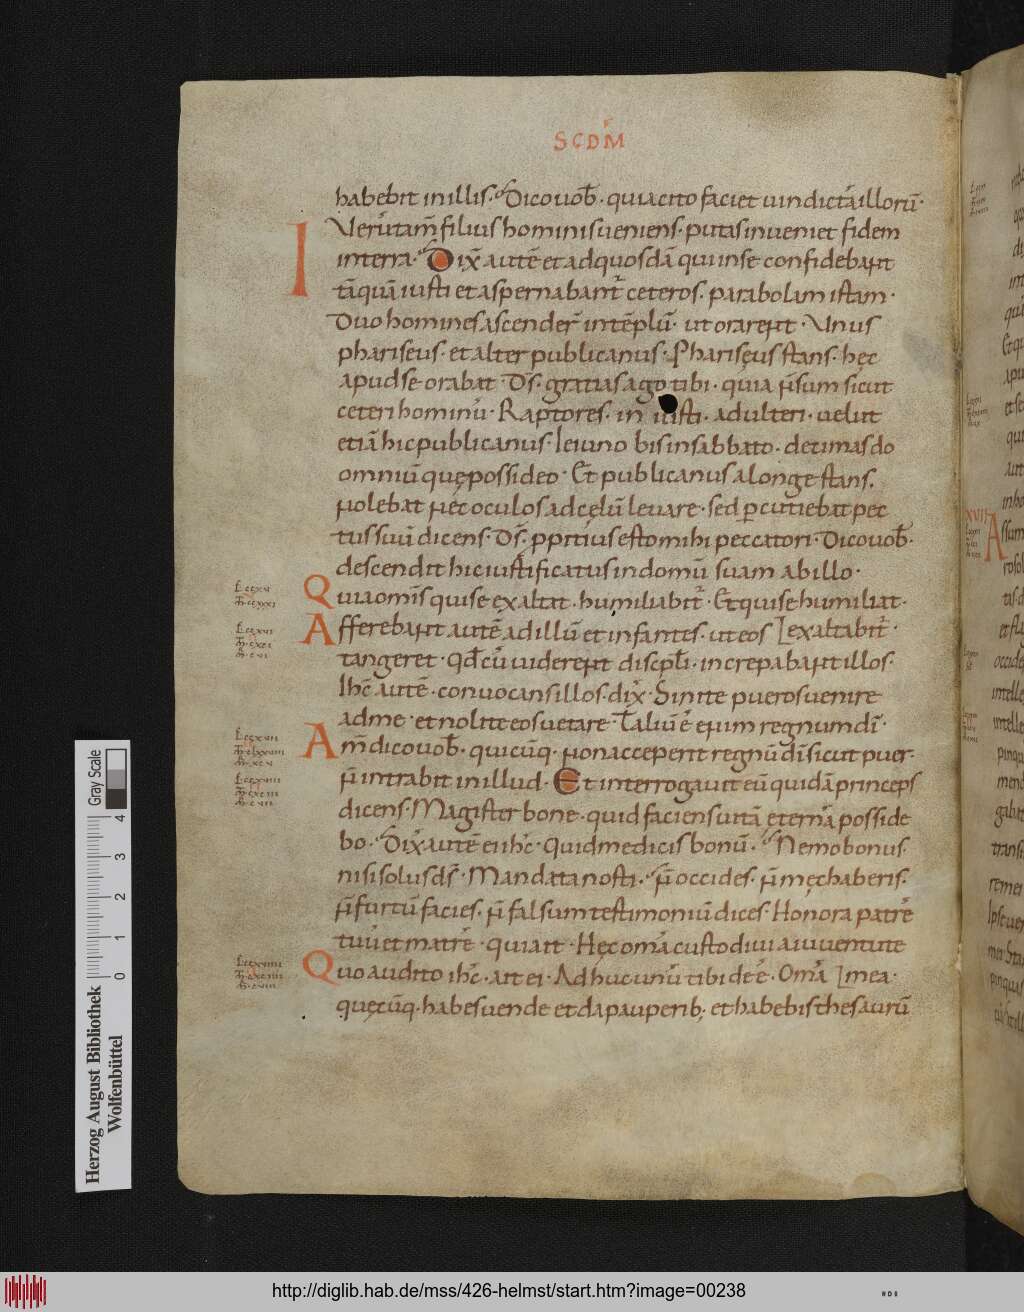 SCDM̄
habebit in illis· Dico uob̄· quia cito faciet uindictā illorū·
Verūtam̄ filius hominis ueniens· putas inueniet fidem
I
in terra· Dix̄ autē et ad quosdā qui in se confidebant
tāquā iusti et aspernabant̄ ceteros· parabolam istam·
Duo homines ascender̄ in tēplū· ut orarent· Vnus
phariseus· et alter publicanus· Phariseus stans· hęc
apud se orabat· Ds̄· gratias ago tibi· quia n̄ sum sicut
ceteri hominū· Raptores· in iusti· adulteri· uelut
etiā hic publicanus· Ieiuno bis in sabbato· decimas do
omniū quę possideo· Et publicanus a longe stans·
nolebat nec oculos ad cęlū leuare· sed p̄cutiebat pec
tus suū dicens· Ds̄· ppitius esto mihi peccatori· Dico uob̄·
descendit hic iustificatus in domū suam ab illo·
Quia om̄s qui se exaltat· humiliabit̄· Et qui se humiliat·
Afferebant autē ad illū et infantes· ut eos [exaltabit̄·
tangeret· Qd̄ cū uiderent discpl̄i· increpabant illos·
Ihc̄ autē· conuocans illos· dix̄· Sinite pueros uenire
ad me· et nolite eos uetare· Taliū ē enim regnum dī·
Am̄ dico uob̄· quicūq· non acceperit regnū dī sicut puer·
n̄ intrabit in illud· Et interrogauit eū quidā princeps
dicens· Magister bone· quid faciens uitā eternā posside
bo· Dix̄ autē ei ihc̄· Quid me dicis bonū· Nemo bonus
nisi solus ds̄· Mandata nosti· n̄ occides· n̄ męchaberis·
n̄ furtū facies· n̄ falsum testimoniū dices· Honora patrē
tuū et matrē· qui ait· Hęc om̄a custodiui a iuuentute
Quo audito ihc̄· ait ei· Adhuc unū tibi deē· Om̄a [mea·
quęcūq· habes uende et da pauperib; et habebis thesaurū
XVII
Gray Scale
0 1 2 3 4
Herzog August Bibliothek
Wolfenbüttel
http://diglib.hab.de/mss/426-helmst/start.htm?image=00238